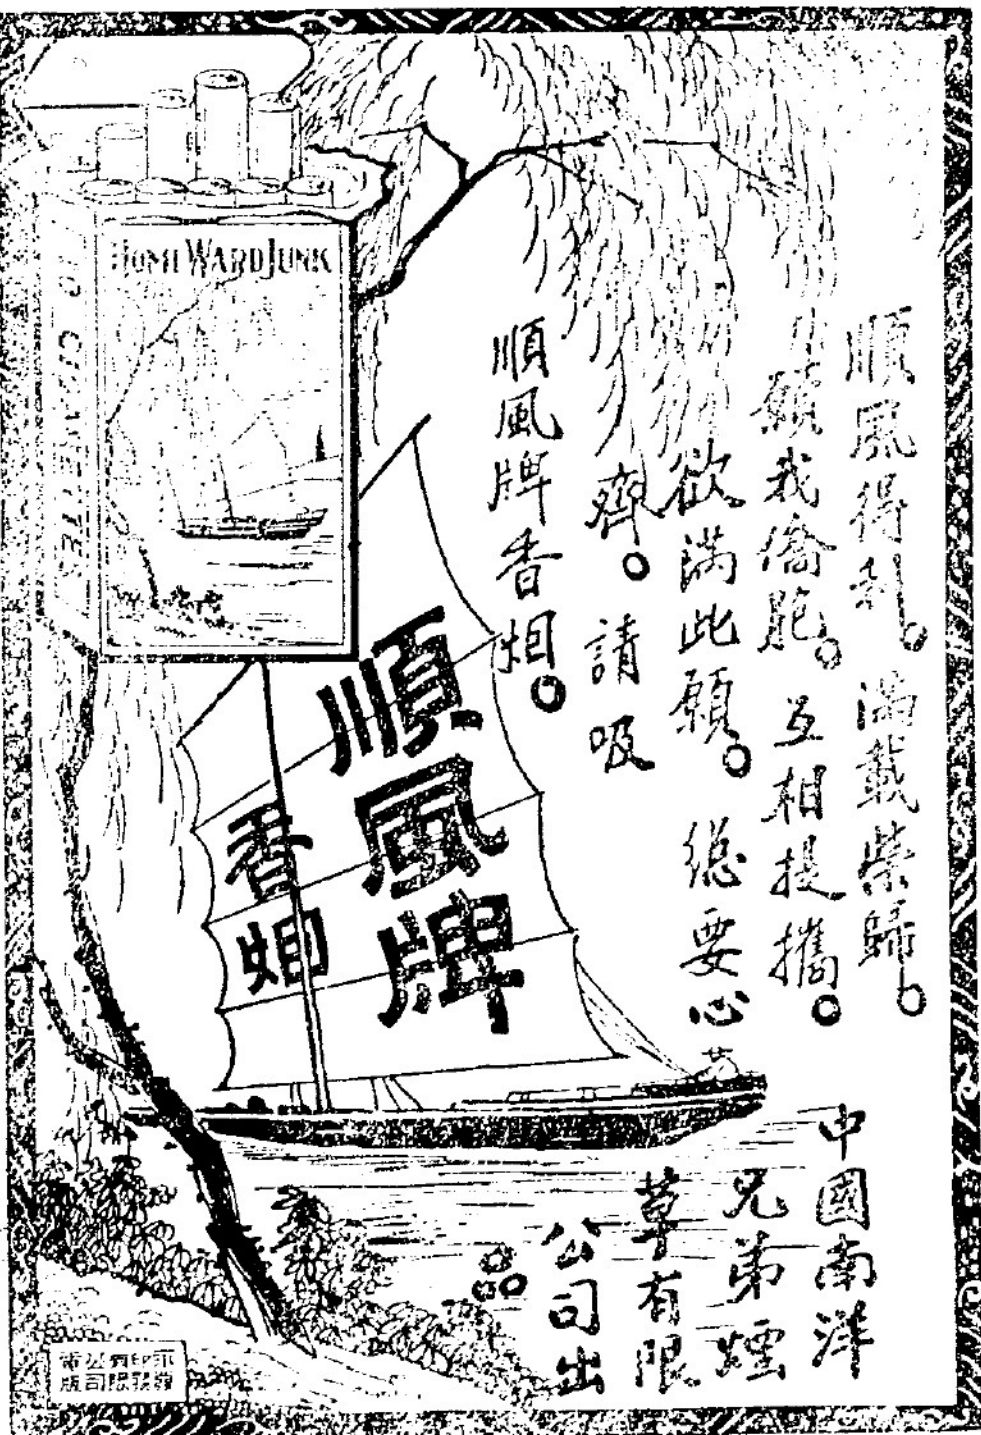 HOME WARD JUNK
10 CIGARETTES
順風得利。滿載榮歸。
願我僑胞。互相提攜。
欲滿此願。總要心
齊。請吸
順風牌香烟。
順風牌
香烟
中國南洋
兄弟煙
草有限
公司出
品